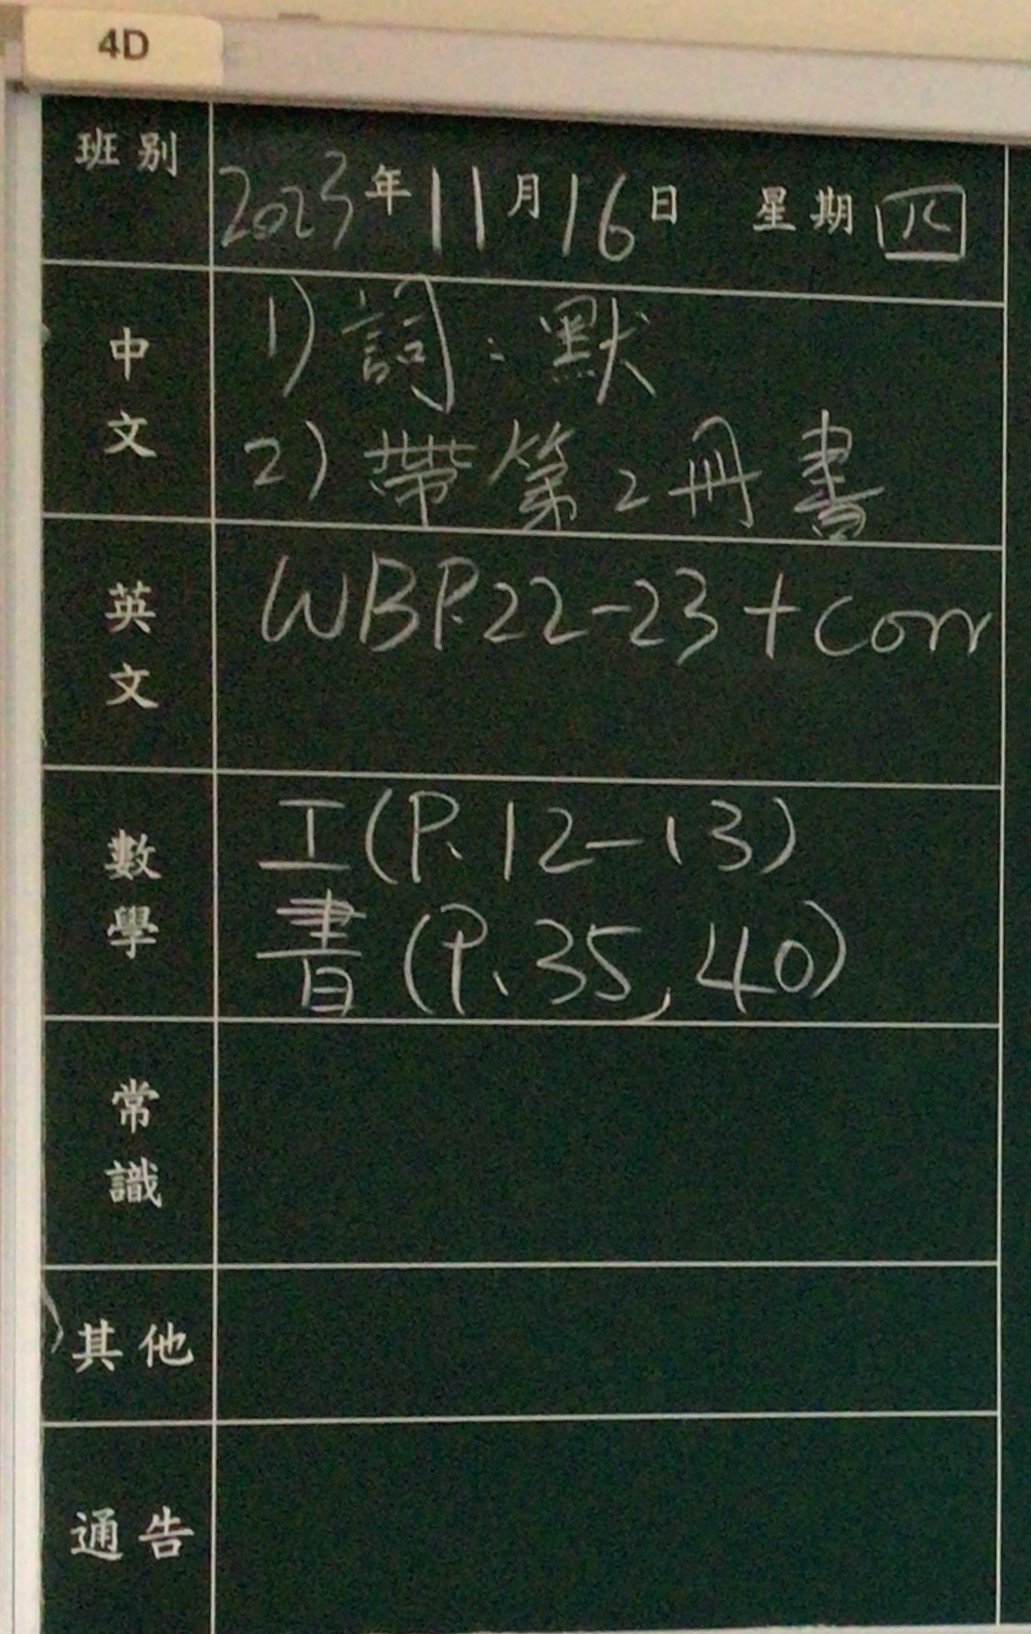 4D
班別
2023年11月16日 星期四
中文
1) 詞:默
2) 帶第2冊書
英文
WBP.22-23+corr
數學
工(P.12-13)
書(P.35,40)
常識
其他
通告